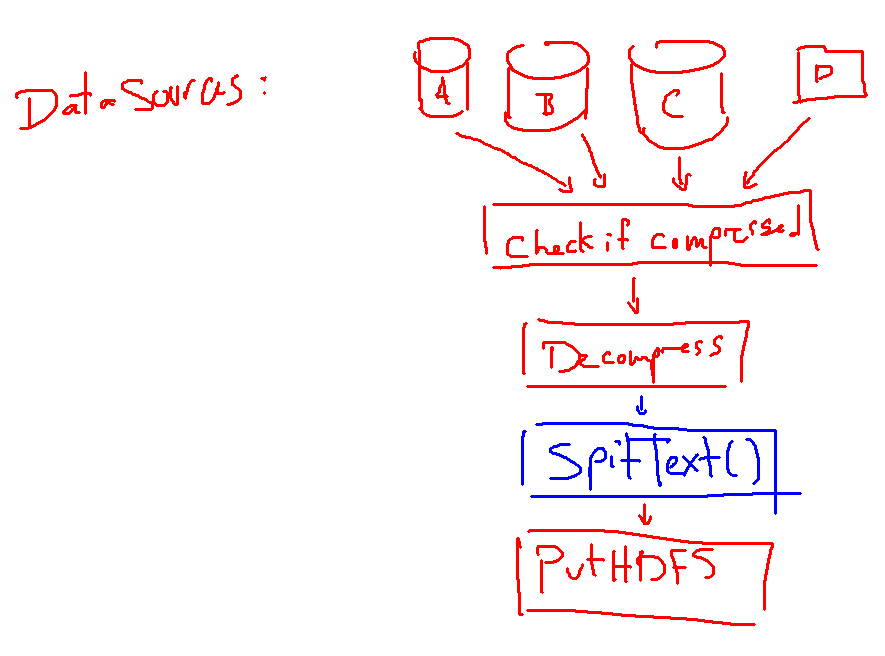 Data Sources:
A B C D
Check if compressed
Decompress
SpitText()
PutHDFS